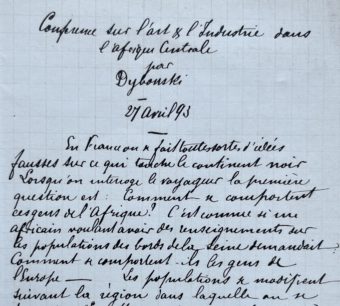 Conference sur l'art & l'Industrie dans
l'Afrique Centrale
par
Dybowski
27 avril 93
En France on se fait toute sorte d'idées
fausses sur ce qui touche le continent noir
Lorsqu'on interroge le voyageur la première
question est : Comment se comportent
ces gens de l'Afrique? C'est comme si un
africain voulant avoir des renseignements sur
les populations des bords de la Seine demandait :
Comment se comportent-ils les gens de
l'Europe — Les populations se modifient
suivant la région dans laquelle on se